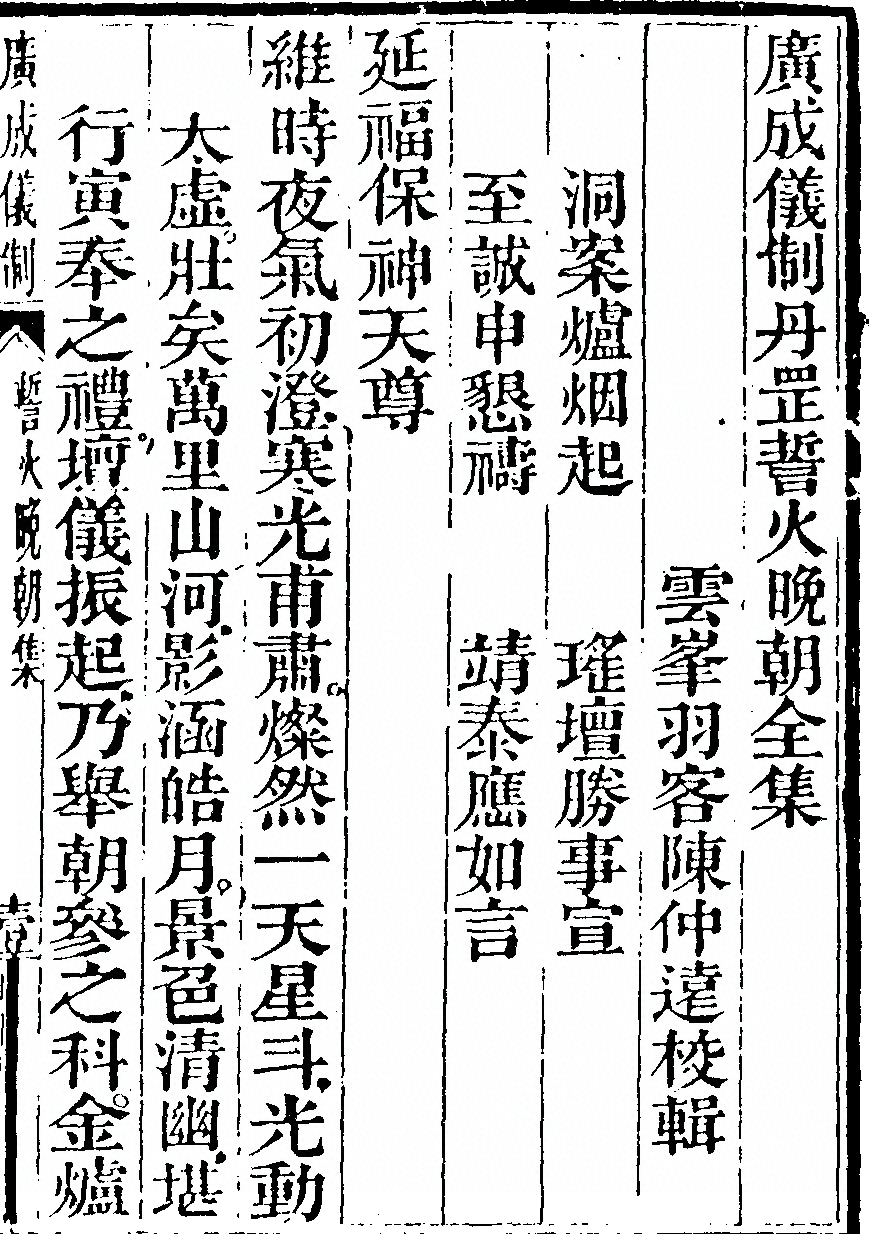 廣成儀制丹罡誓火晚朝全集
雲峯羽客陳仲遠校輯
洞案爐烟起　瑤壇勝事宣
至誠申懇禱　靖泰應如言
延福保神天尊
維時夜氣初澄寒光甫肅。燦然一天星斗、光動
太虛。壯矣萬里山河、影涵皓月。景色清幽、堪
行寅奉之禮。壇儀振起、乃舉朝參之科。金爐
廣成儀制　誓火晚朝集　壹